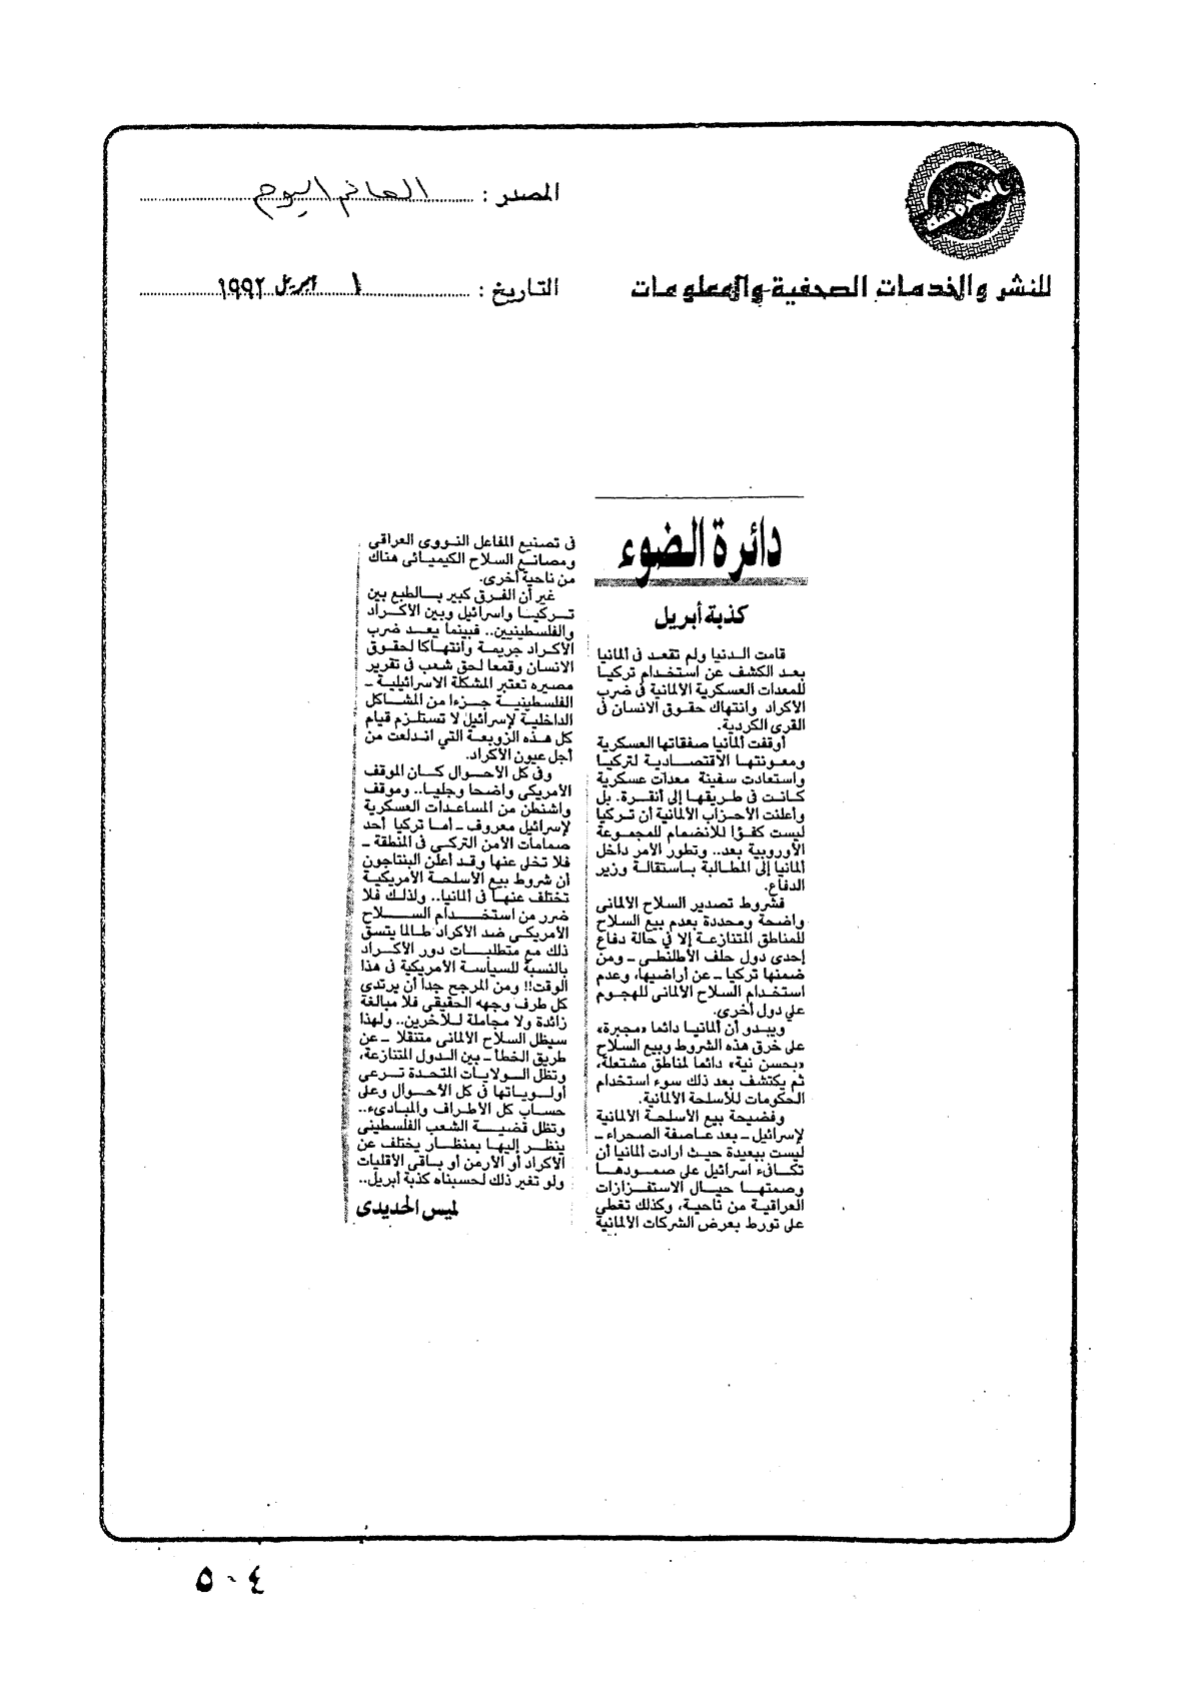 المصدر : العالم اليوم
للنشر والخدمات الصحفية والمعلومات
التاريخ : ١ ابريل ١٩٩٢
دائرة الضوء
كذبة أبريل
قامت الدنيا ولم تقعد فى ألمانيا
بعد الكشف عن استخدام تركيا
للمعدات العسكرية الالمانية فى ضرب
الاكراد وانتهاك حقوق الانسان فى
القرى الكردية.
أوقفت ألمانيا صفقاتها العسكرية
ومعونتها الاقتصادية لتركيا
واستعادت سفينة معدات عسكرية
كانت فى طريقها إلى أنقرة. بل
وأعلنت الأحزاب الألمانية أن تركيا
ليست كفؤا للانضمام للمجموعة
الأوروبية بعد.. وتطور الأمر داخل
ألمانيا إلى المطالبة باستقالة وزير
الدفاع.
فشروط تصدير السلاح الالمانى
واضحة ومحددة بعدم بيع السلاح
للمناطق المتنازعة إلا فى حالة دفاع
إحدى دول حلف الأطلنطى - ومن
ضمنها تركيا - عن أراضيها، وعدم
استخدام السلاح الألمانى للهجوم
على دول أخرى.
ويبدو أن ألمانيا دائما «مجبرة»
على خرق هذه الشروط وبيع السلاح
«بحسن نية» دائما لمناطق مشتعلة،
ثم يكتشف بعد ذلك سوء استخدام
الحكومات للأسلحة الألمانية.
وفضيحة بيع الأسلحة الالمانية
لإسرائيل - بعد عاصفة الصحراء -
ليست ببعيدة حيث أرادت ألمانيا أن
تكافىء اسرائيل على صمودها
وصمتها حيال الاستفزازات
العراقية من ناحية، وكذلك تغطى
على تورط بعرض الشركات الألمانية
فى تصنيع المفاعل النووى العراقى
ومصانع السلاح الكيميائى هناك
من ناحية أخرى.
غير أن الفرق كبير بالطبع بين
تركيا واسرائيل وبين الأكراد
والفلسطينيين.. فبينما يعد ضرب
الأكراد جريمة وانتهاكا لحقوق
الانسان وقمعا لحق شعب فى تقرير
مصيره تعتبر المشكلة الاسرائيلية -
الفلسطينية جزءا من المشاكل
الداخلية لإسرائيل لا تستلزم قيام
كل هذه الزوبعة التي اندلعت من
أجل عيون الأكراد.
وفى كل الأحوال كان الموقف
الأمريكى واضحا وجليا.. وموقف
واشنطن من المساعدات العسكرية
لإسرائيل معروف - أما تركيا أحد
صمامات الأمن التركى فى المنطقة -
فلا تخلى عنها وقد أعلن البنتاجون
أن شروط بيع الأسلحة الأمريكية
تختلف عنها فى ألمانيا.. ولذلك فلا
ضرر من استخدام السلاح
الأمريكى ضد الأكراد طالما يتسق
ذلك مع متطلبات دور الأكراد
بالنسبة للسياسة الأمريكية فى هذا
الوقت!! ومن المرجح جدا أن يرتدى
كل طرف وجهه الحقيقى فلا مبالغة
زائدة ولا مجاملة للآخرين.. ولهذا
سيظل السلاح الألمانى متنقلا - عن
طريق الخطأ - بين الدول المتنازعة،
وتظل الولايات المتحدة ترعى
أولوياتها فى كل الأحوال وعلى
حساب كل الأطراف والمبادىء..
وتظل قضية الشعب الفلسطينى
ينظر إليها بمنظار يختلف عن
الأكراد أو الأرمن أو باقى الأقليات
ولو تغير ذلك لحسبناه كذبة أبريل..
لميس الحديدى
٥٠٤